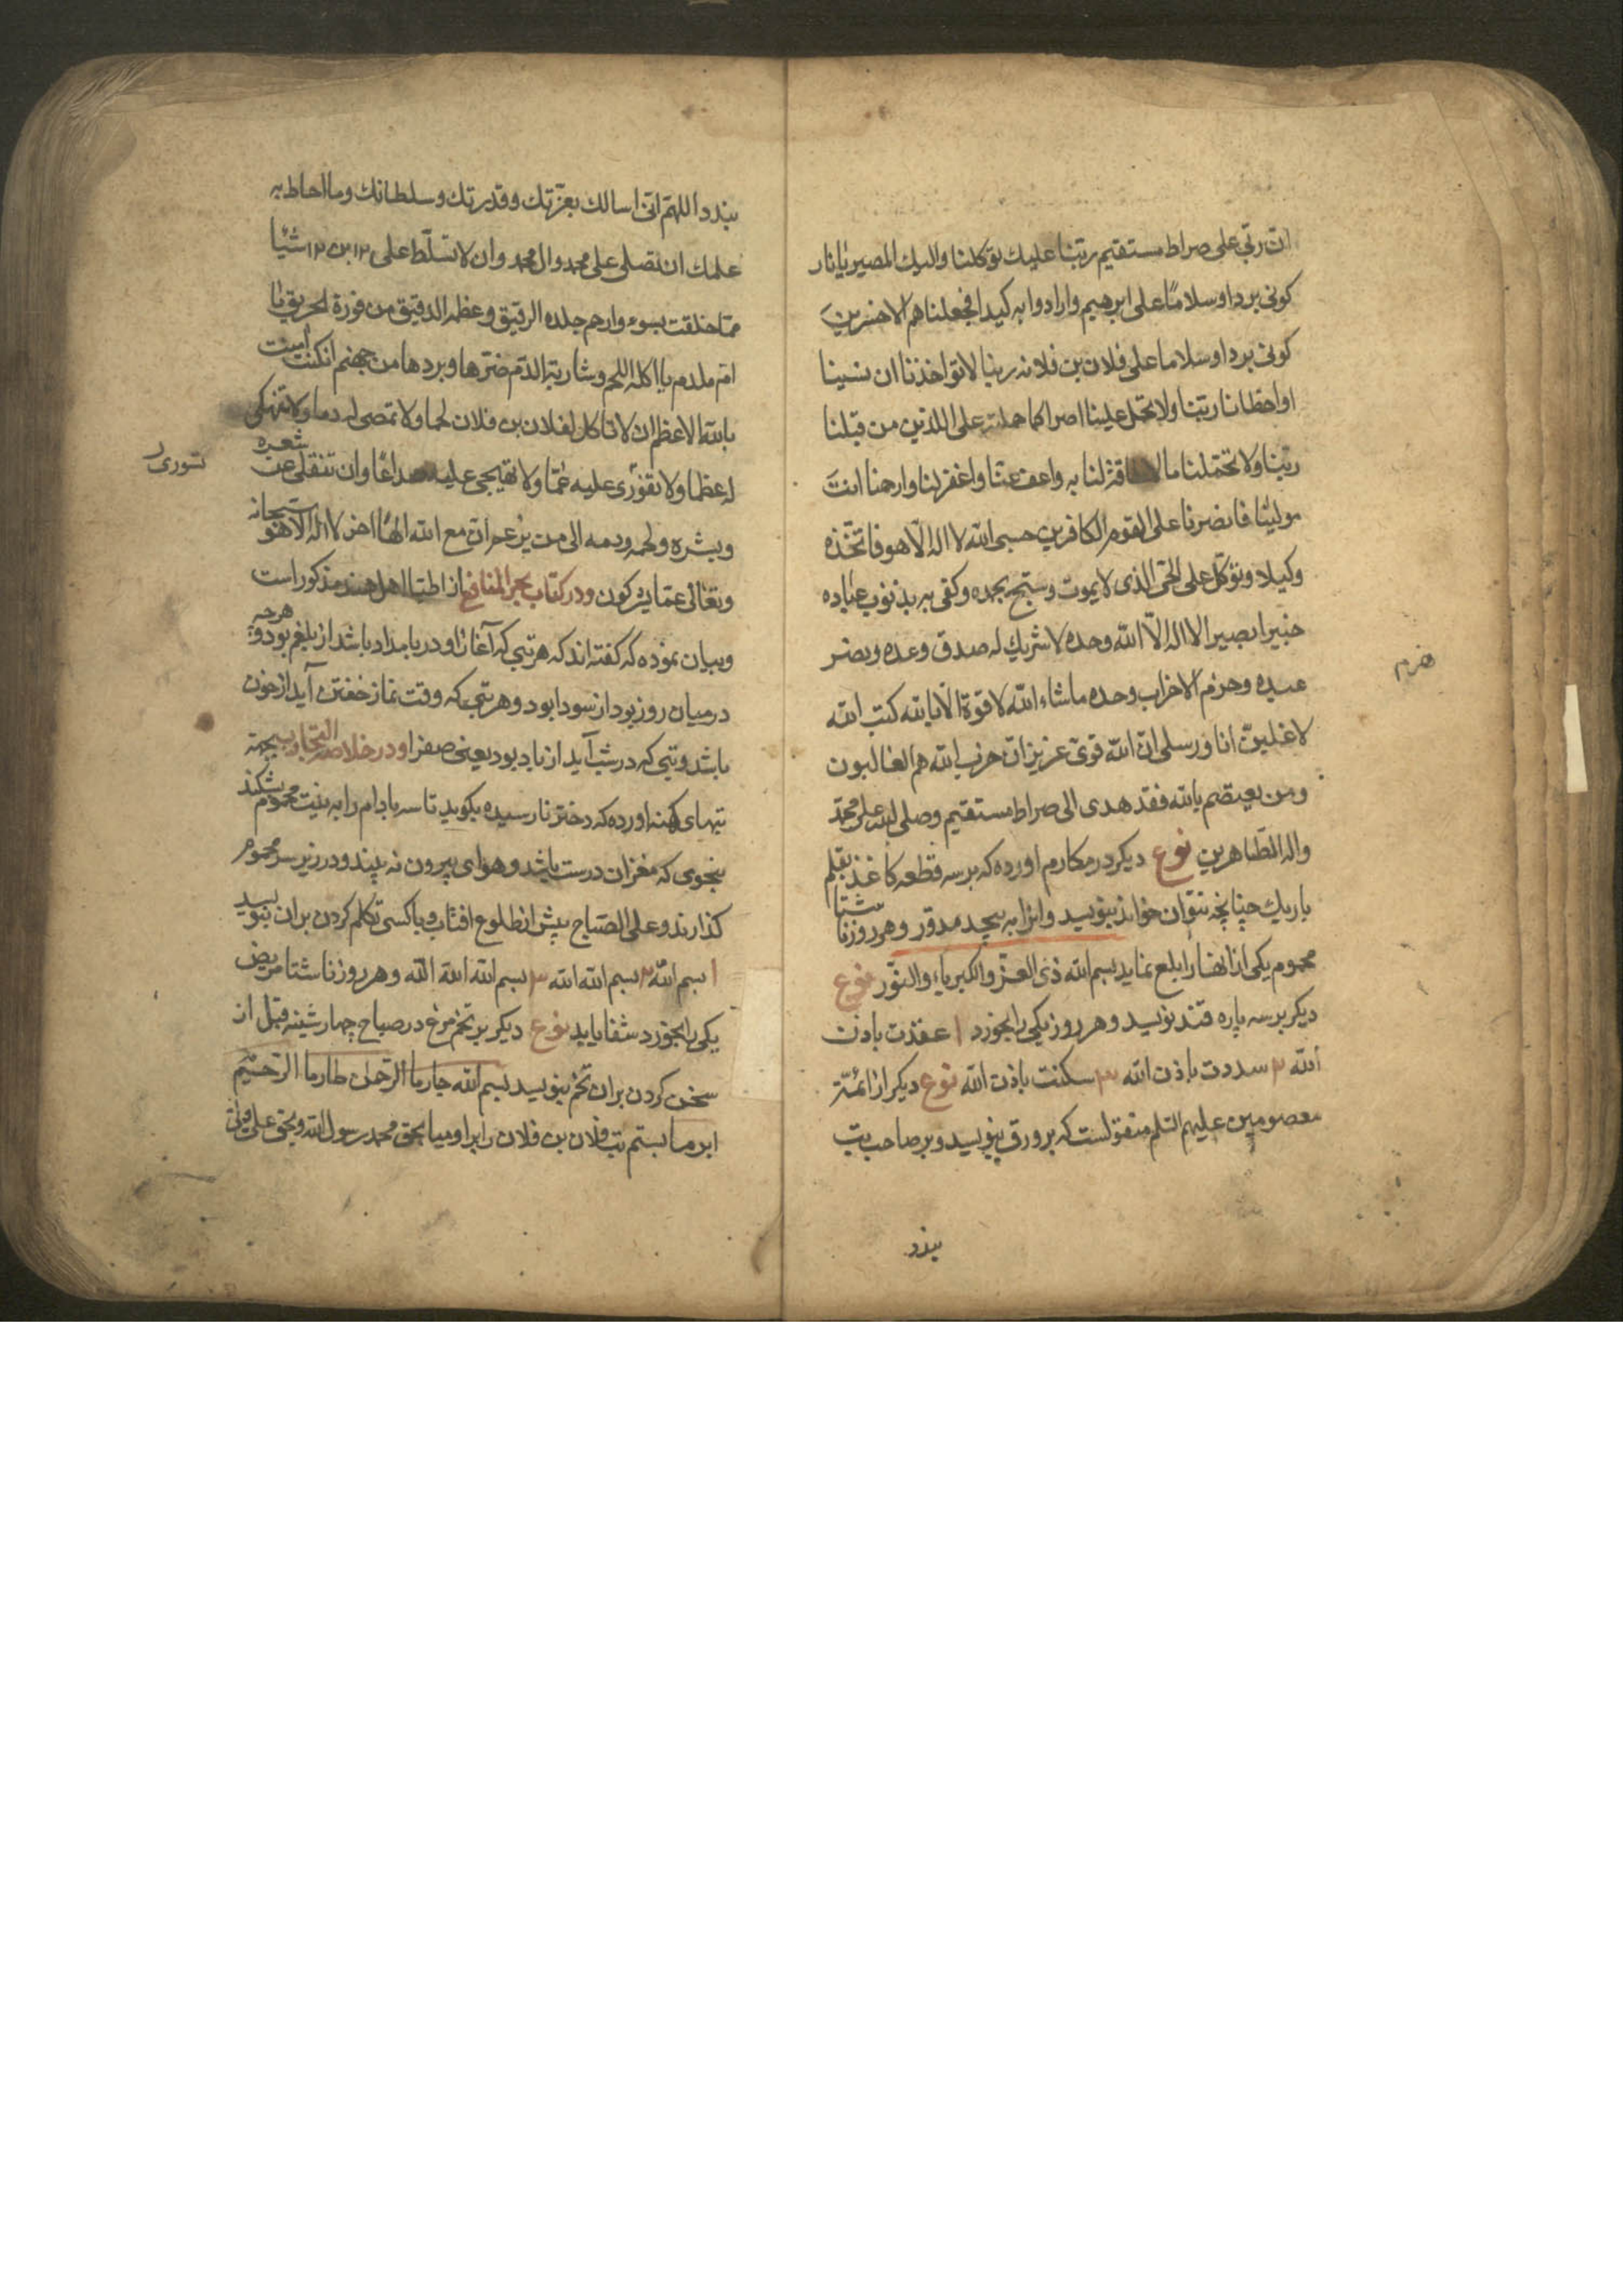 ان ربی علی صراط مستقیم ربنا علیك توكلنا والیك المصیر یا نار
كونی بردا وسلاما علی ابرهیم وارادوا به كیدا فجعلناهم الاخسرین
كونی بردا وسلاما علی فلان بن فلانه ربنا لا تواخذنا ان نسینا
او اخطانا ربنا ولا تحمل علینا اصرا كما حملته علی الذین من قبلنا
ربنا ولا تحملنا ما لا طاقة لنا به واعف عنا واغفر لنا وارحمنا انت
مولینا فانصرنا علی القوم الكافرین حسبی الله لا اله الا هو فاتخذه
وكیلا وتوكل علی الحی الذی لا یموت وسبح بحمده وكفی به بذنوب عباده
خبیرا بصیرا لا اله الا الله وحده لا شریك له صدق وعده ونصر
عبده وحزم الاحزاب وحده ما شاء الله لا قوة الا بالله كتب الله
هزم
لاغلبن انا ورسلی ان الله قوی عزیز ان حزب الله هم الغالبون
ومن یعتصم بالله فقد هدی الی صراط مستقیم وصلی الله علی محمد
واله الطاهرین نوع دیكر در مكارم اورده كه بر سه قطعه كاغذ بقلم
باریك چنانچه نتوان خواند بنویسد وانرا به پیچد مدور وهر روز ناشتا
محموم یكی از انها را بلع نماید بسم الله ذی العز والكبریاء والنور نوع
دیكر بر سه پاره قند نویسد وهر روز یكی را بخورد ١ عقدت باذن
الله ٢ سددت باذن الله ٣ سكنت باذن الله نوع دیكر از ائمه
معصومین علیهم السلم منقولست كه بر ورق بنویسد وبر صاحب تب
بندد
بندد اللهم انی اسالك بعزتك وقدرتك وسلطانك وما احاط به
علمك ان تصلی علی محمد وال محمد وان لا تسلط علی ١٢ بن ١٢ شیئا
مما خلقت بسوء وارحم جلده الرقیق وعظمه الدقیق من فورة الحریق یا
ام ملدم یا اكلة اللحم وشاربة الدم حرها وبردها من جهنم ان كنت امنت
بالله الاعظم ان لا تاكلی لفلان بن فلان لحما ولا تمصی له دما ولا تنهكی
له عظما ولا تقوری علیه غما ولا تهیجی علیه صداعا وان تنقلی عن شعره
تثوری
وبشره ولحمه ودمه الی من یزعم ان مع الله الها اخر لا اله الا هو سبحانه
وتعالی عما یشركون ودر كتاب بحر المنافع از اطبا اهل هند مذكور است
وبیان نموده كه كفته اند كه هر تبی كه آغاز او در بامداد باشد از بلغم بود وهرچه
در میان روز بود از سودا بود وهر تبی كه وقت نماز خفتن آید از خون
باشد وتبی كه در شب آید از باد بود یعنی صفرا ودر خلاصة التجارب بجهته
تبهای كهنه اورده كه دختر نارسیده بكوید تا سه بادام را به نیت محموم بشكند
بنحوی كه مغز ان درست باشد وهوای بیرون نه بیند ودر زیر سر محموم
كذارند وعلی الصباح پیش از طلوع افتاب وباكسی تكلم كردن بر ان بنویسد
١ بسم الله ٢ بسم الله الله ٣ بسم الله الله الله وهر روز ناشتا مریض
یكی را بخورد شفا یابد نوع دیكر بر تخم مرغ در صباح چهارشنبه قبل از
سخن كردن بر ان تخم بنویسد بسم الله جارما الرحمن طارما الرحیم
ابرما بستم تب فلان بن فلان را براومیا بحق محمد رسول الله وبحق علی ولی